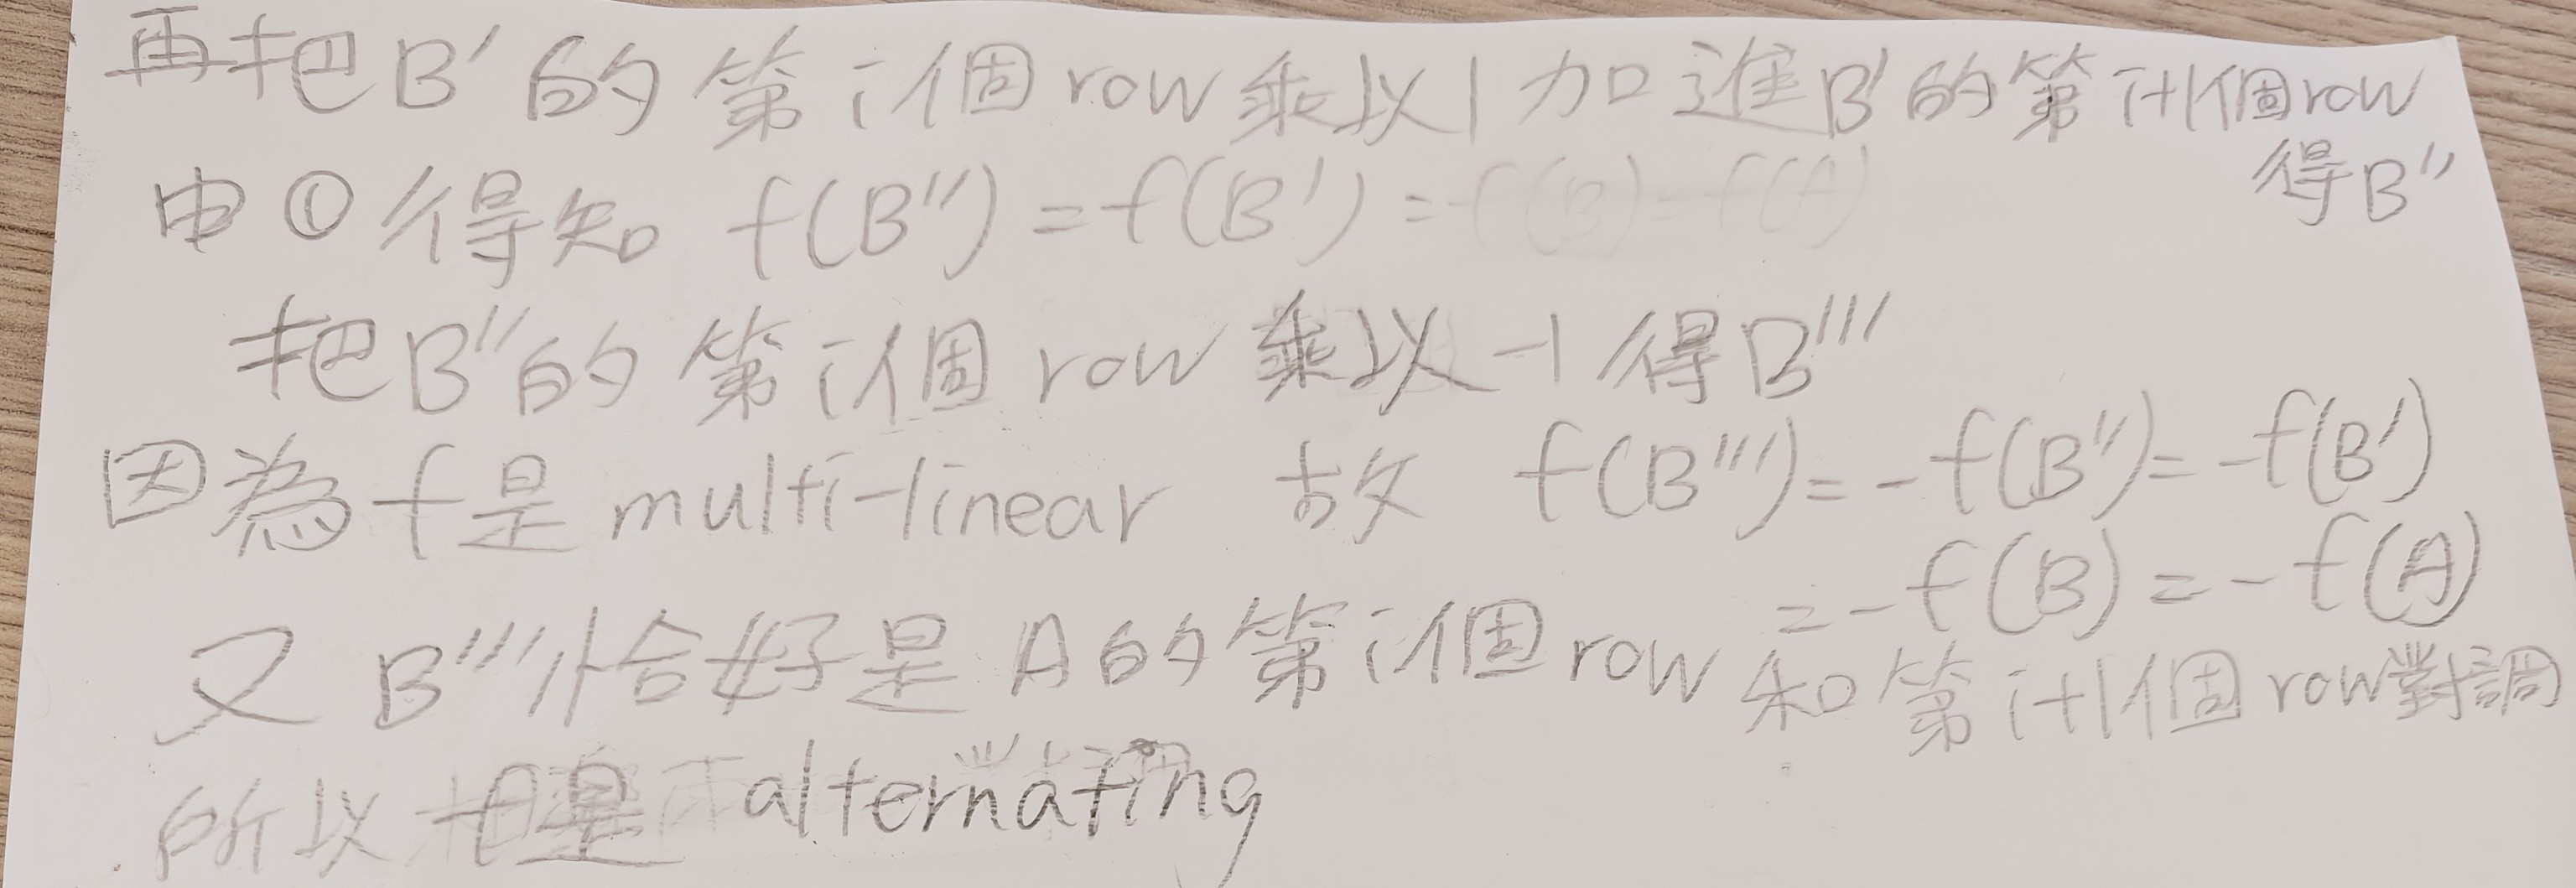 再把B′的第i個row乘以1加進B′的第i+1個row
得B″
由①得知 f(B″)=f(B′)=
把B″的第i個row乘以-1得B‴
因為f是multi-linear 故 f(B‴)=-f(B″)=-f(B′)
=-f(B)=-f(A)
又B‴恰好是A的第i個row和第i+1個row對調
所以f是alternating